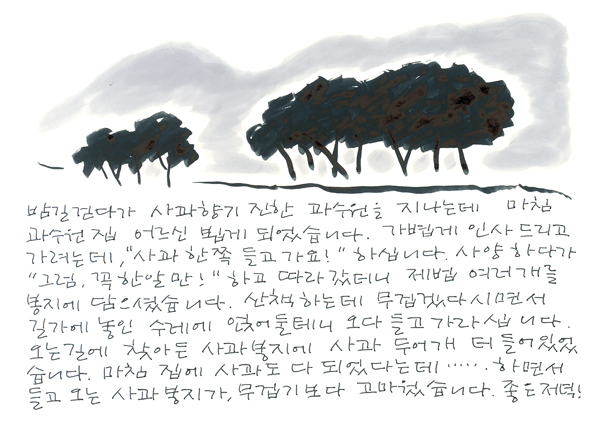 밤길 걷다가 사과향기 진한 과수원을 지나는데 마침
과수원집 어르신 뵙게 되었습니다. 가볍게 인사드리고
가려는데, "사과 한쪽 들고 가요!" 하십니다. 사양하다가
"그럼, 꼭 한알만!" 하고 따라갔더니 제법 여러개를
봉지에 담으셨습니다. 산책하는데 무겁겠다시면서
길가에 놓인 수레에 얹어둘테니 오다 들고가라십니다.
오는길에 찾아든 사과봉지에 사과 두어개 더 들어있었
습니다. 마침 집에 사과도 다 되었다는데...... 하면서
들고 오는 사과봉지가, 무겁기보다 고마웠습니다. 좋은저녁!